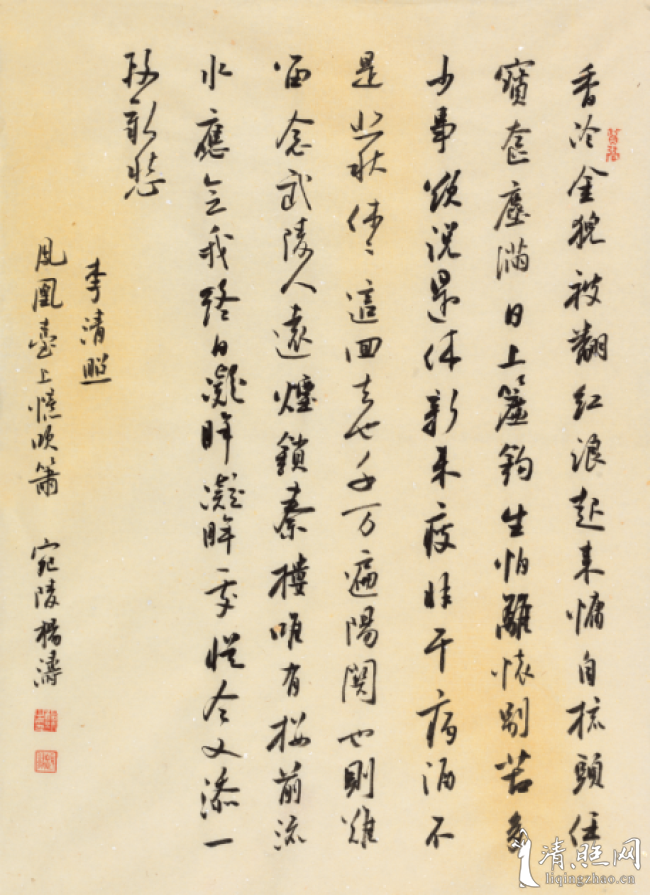 香冷金猊被翻紅浪起来慵自梳頭任
寶奩塵滿日上簾鉤生怕離懷別苦多
少事欲說還休新来瘦非干病酒不
是悲秋休〻這回去也千万遍陽關也則難
留念武陵人遠煙鎖秦樓唯有樓前流
水應念我終日凝眸凝眸處從今又添一
段新愁
李清照
鳳凰臺上憶吹簫 宛陵楊濤
清照网
liqingzhao.com